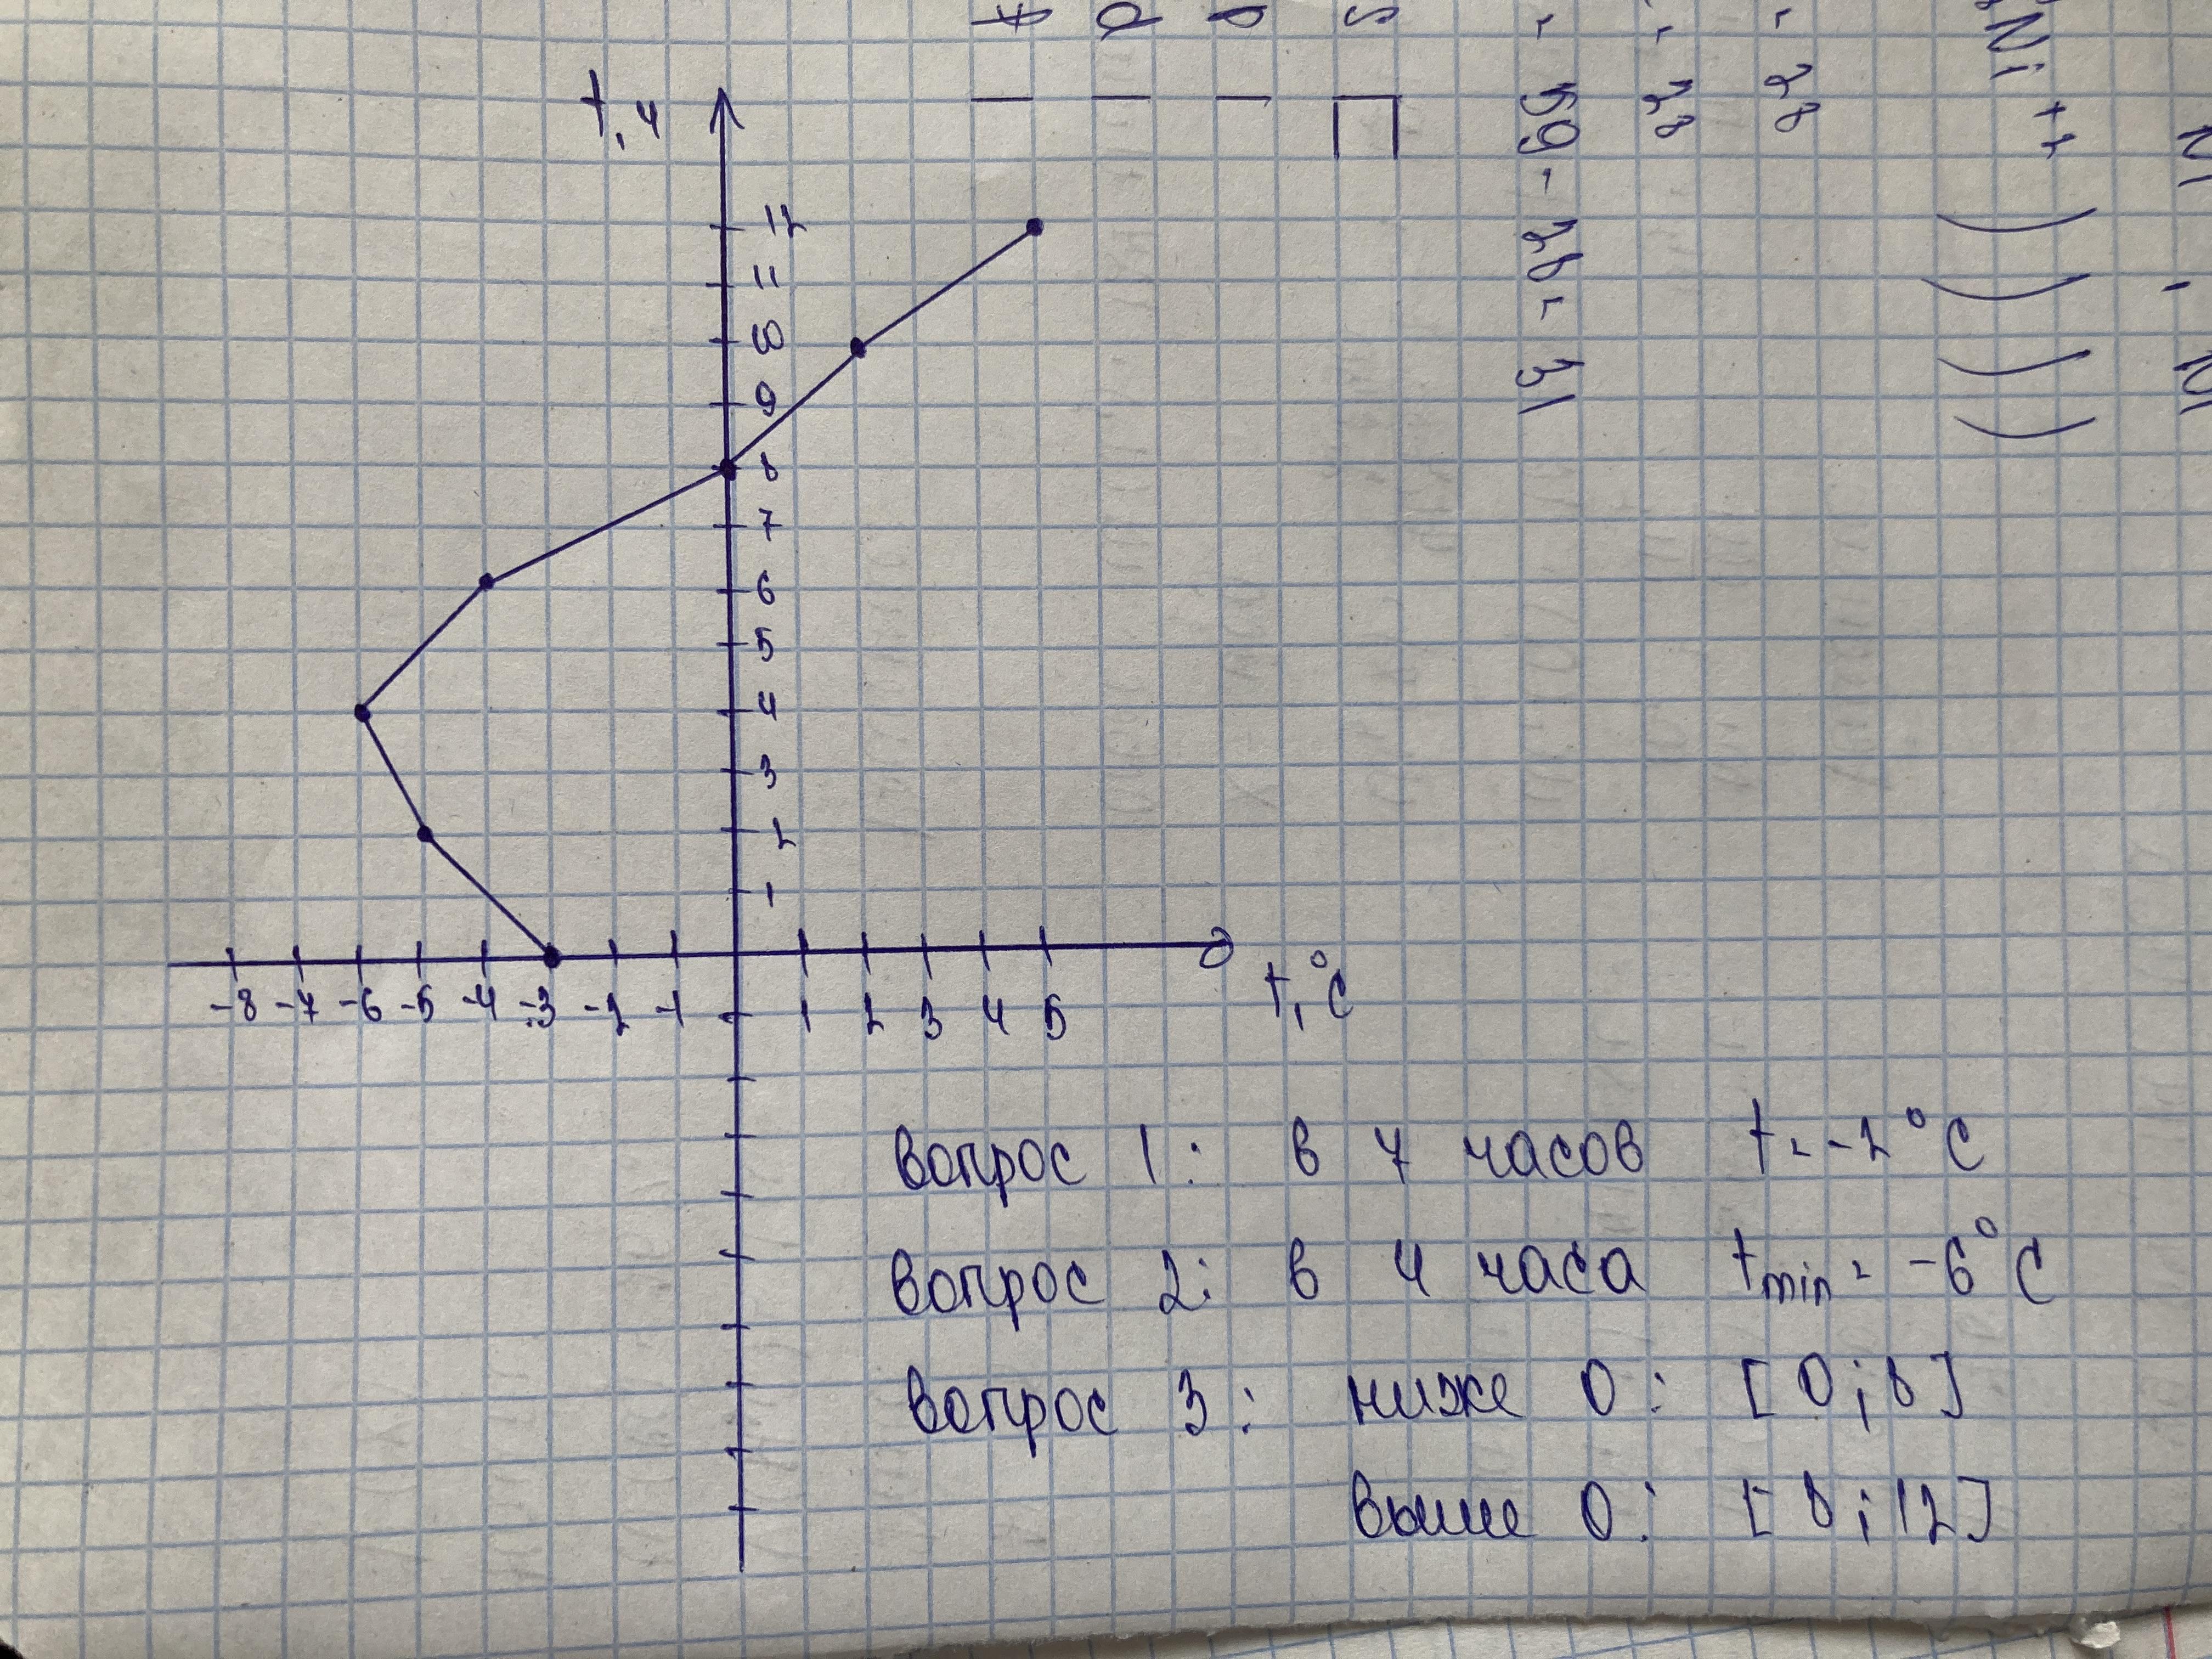 t, ч
12
11
10
9
8
7
6
5
4
3
2
1
-8 -7 -6 -5 -4 -3 -2 -1 1 2 3 4 5
t, °C
вопрос 1: в 7 часов t = -2 °C
вопрос 2: в 4 часа tmin = -6 °C
вопрос 3: ниже 0: [0; 8]
выше 0: [8; 12]
f
d
p
s
- 59 - 28 = 31
- 28
- 28
Ni +2 ) ) ) )